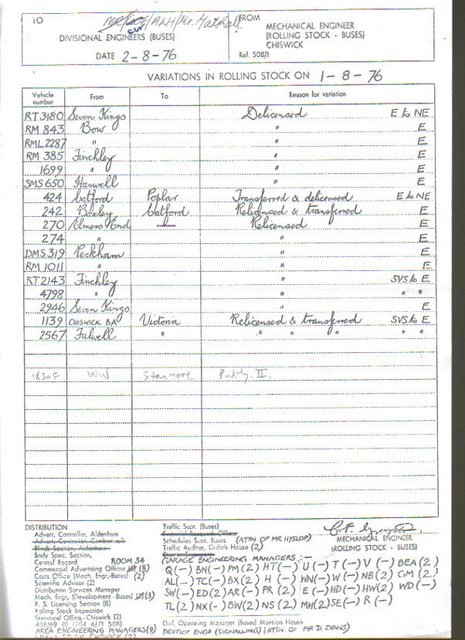 TO
DIVISIONAL ENGINEERS (BUSES)
DATE 2-8-76
FROM
MECHANICAL ENGINEER
(ROLLING STOCK - BUSES)
CHISWICK
Ref. 508/1
VARIATIONS IN ROLLING STOCK ON 1-8-76
Vehicle number From To Reason for variation
RT3180 Seven Kings Delicensed E to NE
RM 843 Bow " E
RML2287 " " E
RM 385 Finchley " E
1699 " " E
SMS 650 Hanwell " E
424 Catford Poplar Transferred & delicensed E to NE
242 Bexley Catford Relicensed & transferred E
270 Elmers End Relicensed E
274 " " E
DMS 319 Peckham " E
RM 1011 " " E
RT2143 Finchley " SVS to E
4798 " " " "
2946 Seven Kings " E
1139 CHISWICK BA Victoria Relicensed & transferred SVS to E
2567 Fulwell " " " " " "
1830F WW Stanmore
DISTRIBUTION
Advert. Controller, Aldenham
Body Spec. Section,
Central Record ROOM 34
Commercial Advertising Officer (8)
Costs Office (Mech. Engr.-Buses) (2)
Scientific Adviser (2)
Distribution Services Manager
Mech. Engr. (Development - Buses) (3)
P. S. Licensing Section (8)
Rolling Stock Inspection
Statistical Office - Chiswick (2)
AREA ENGINEERING MANAGERS(9)
Traffic Supt. (Buses)
Financial Research Officer
Schedules Supt. Buses (ATTN OF MR HYSLOP)
Traffic Auditor, Griffith House (2)
MECHANICAL ENGINEER
(ROLLING STOCK - BUSES)
GARAGE ENGINEERING MANAGERS :-
Q(-) BN(-) PM(2) HT(-) U(-) T(-) V(-) BEA(2)
AL(-) TC(-) BX(2) H(-) WN(-) W(-) NB(2) CM(2)
SW(-) ED(2) AR(-) PR(2) E(-) HD(-) HW(2) WD(-)
TL(2) NX(-) BW(2) NS(2) MH(2) SE(-) R(-)
Dist. Operating Manager (Buses) Mansion House
DEVELOP ENGR (SIGNALLING) (ATTN OF MR D EVANS)